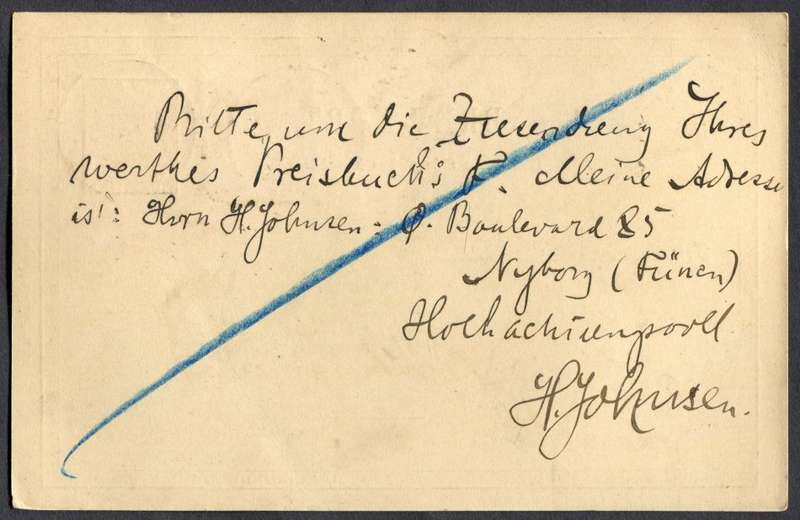 Bitte um die Zusendung Ihres
werthes Preisbuch's F. Meine Adresse
ist: Herrn H. Johnsen. Ø. Boulevard 85
Nyborg (Fünen)
Hochachtungsvoll
H. Johnsen.